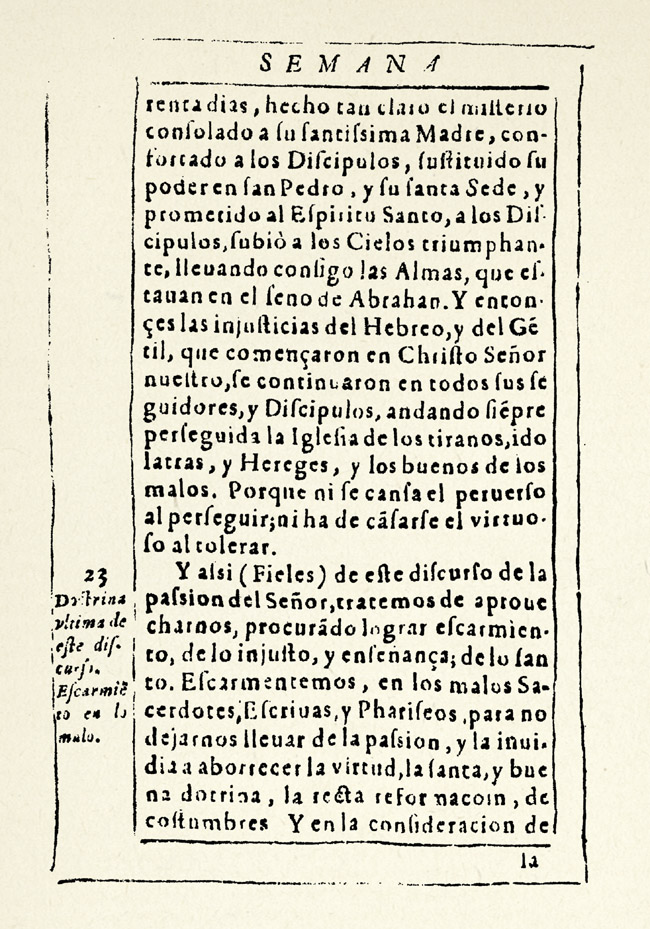 SEMANA
renta dias, hecho tan claro el misterio
consolado a su santissima Madre, con-
fortado a los Discipulos, sustituido su
poder en san Pedro, y su santa Sede, y
prometido al Espiritu Santo, a los Dis-
cipulos, subiò a los Cielos triumphan-
te, lleuando consigo las Almas, que es-
tauan en el seno de Abrahan. Y enton-
çes las injusticias del Hebreo, y del Gẽ
til, que començaron en Christo Señor
nuestro, se continuaron en todos sus se
guidores, y Discipulos, andando siẽpre
perseguida la Iglesia de los tiranos, ido
latras, y Hereges, y los buenos de los
malos. Porque ni se cansa el peruerso
al perseguir; ni ha de cãsarse el virtuo-
so al tolerar.
23
Doctrina
vltima de
este dis-
curso.
Escarmiẽ
to en lo
malo.
Y assi (Fieles) de este discurso de la
passion del Señor, tratemos de aproue
charnos, procurãdo lograr escarmien-
to, de lo injusto, y enseñança; de lo san
to. Escarmentemos, en los malos Sa-
cerdotes, Escriuas, y Phariseos, para no
dejarnos lleuar de la passion, y la inui-
dia a aborrecer la virtud, la santa, y bue
na dotrina, la recta refornacoin, de
costumbres Y en la consideracion de
la